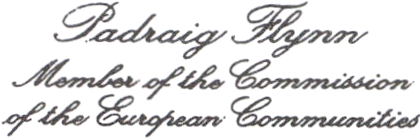 Padraig Flynn
Member of the Commission
of the European Communities